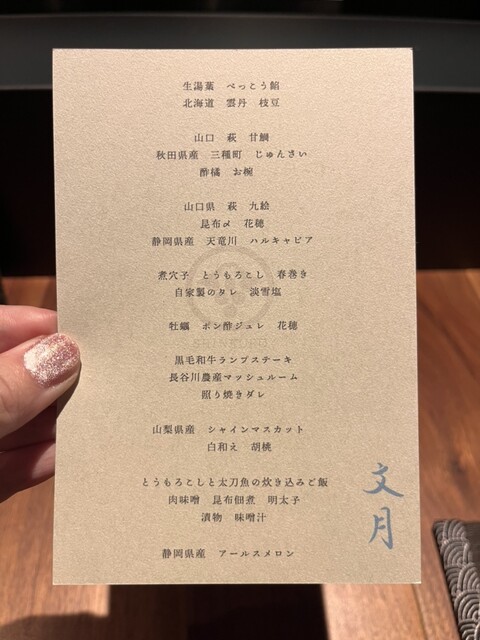 生湯葉　べっこう餡
北海道　雲丹　枝豆
山口　萩　甘鯛
秋田県産　三種町　じゅんさい
酢橘　お椀
山口県　萩　九絵
昆布〆　花穂
静岡県産　天竜川　ハルキャビア
煮穴子　とうもろこし　春巻き
自家製のタレ　淡雪塩
牡蠣　ポン酢ジュレ　花穂
黒毛和牛ランプステーキ
長谷川農産マッシュルーム
照り焼きダレ
山梨県産　シャインマスカット
白和え　胡桃
とうもろこしと太刀魚の炊き込みご飯
肉味噌　昆布佃煮　明太子
漬物　味噌汁
静岡県産　アールスメロン
文月